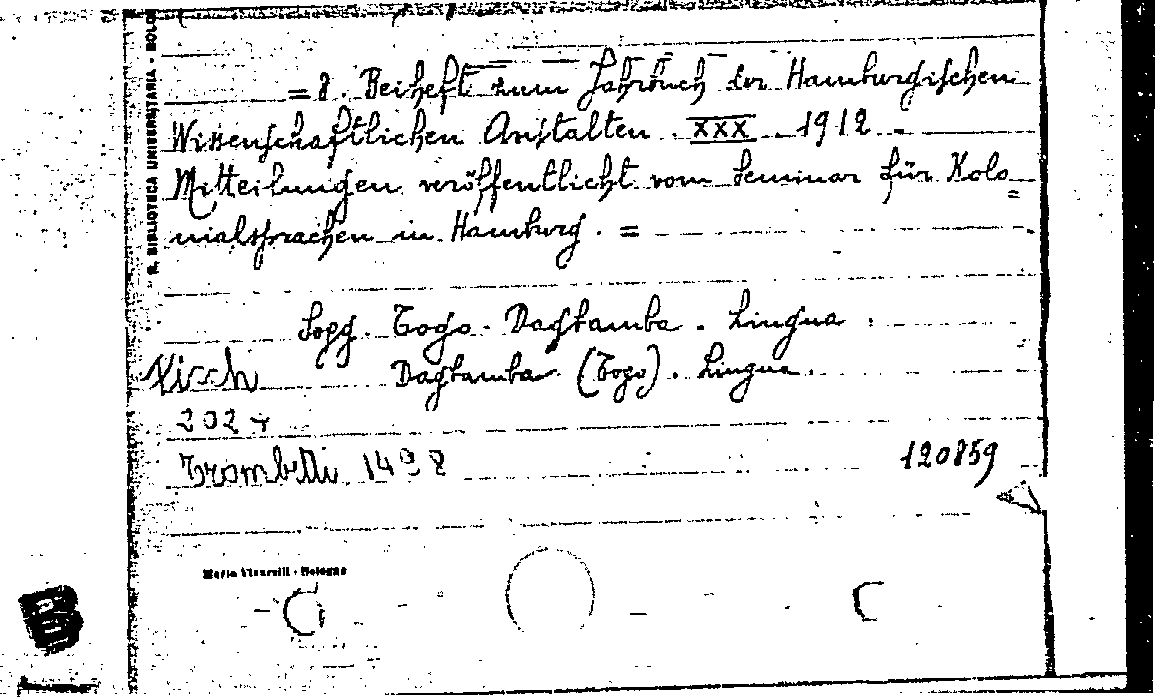 R. BIBLIOTECA UNIVERSITARIA - BOLO
= 8. Beiheft zum Jahrbuch der Hamburgischen
Wissenschaftlichen Anstalten. XXX. 1912 -
Mitteilungen veröffentlicht vom Seminar für Kolo=
nialsprachen in Hamburg. =
Sogg. Togo. Dagbamba. Lingua.
Dagbamba (Togo). Lingua.
Fisch
202
Trombetti 1498
120859
Bologna